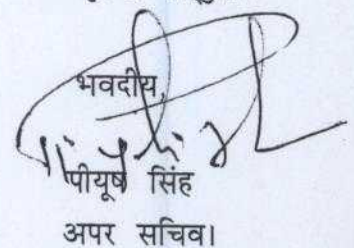 भवदीय,
पीयूष सिंह
अपर सचिव।